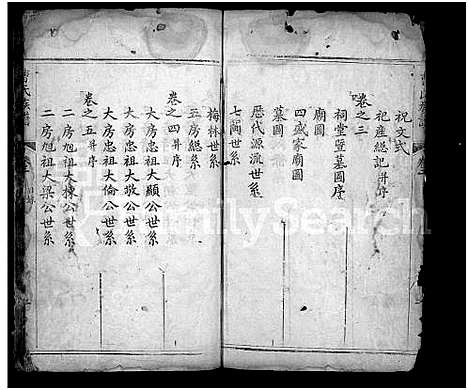 祝文式
卷之三
祀產總記併序
祠堂塋墓圖序
廟圖
四戚家廟圖
墓圖
歷代源流世系
七閩世系
梅林世系
五房總系
卷之四併序
大房忠祖大顯公世系
大房忠祖大敬公世系
大房忠祖大倫公世系
卷之五併序
二房旭祖大棟公世系
二房旭祖大梁公世系
氏族譜
FamilySearch